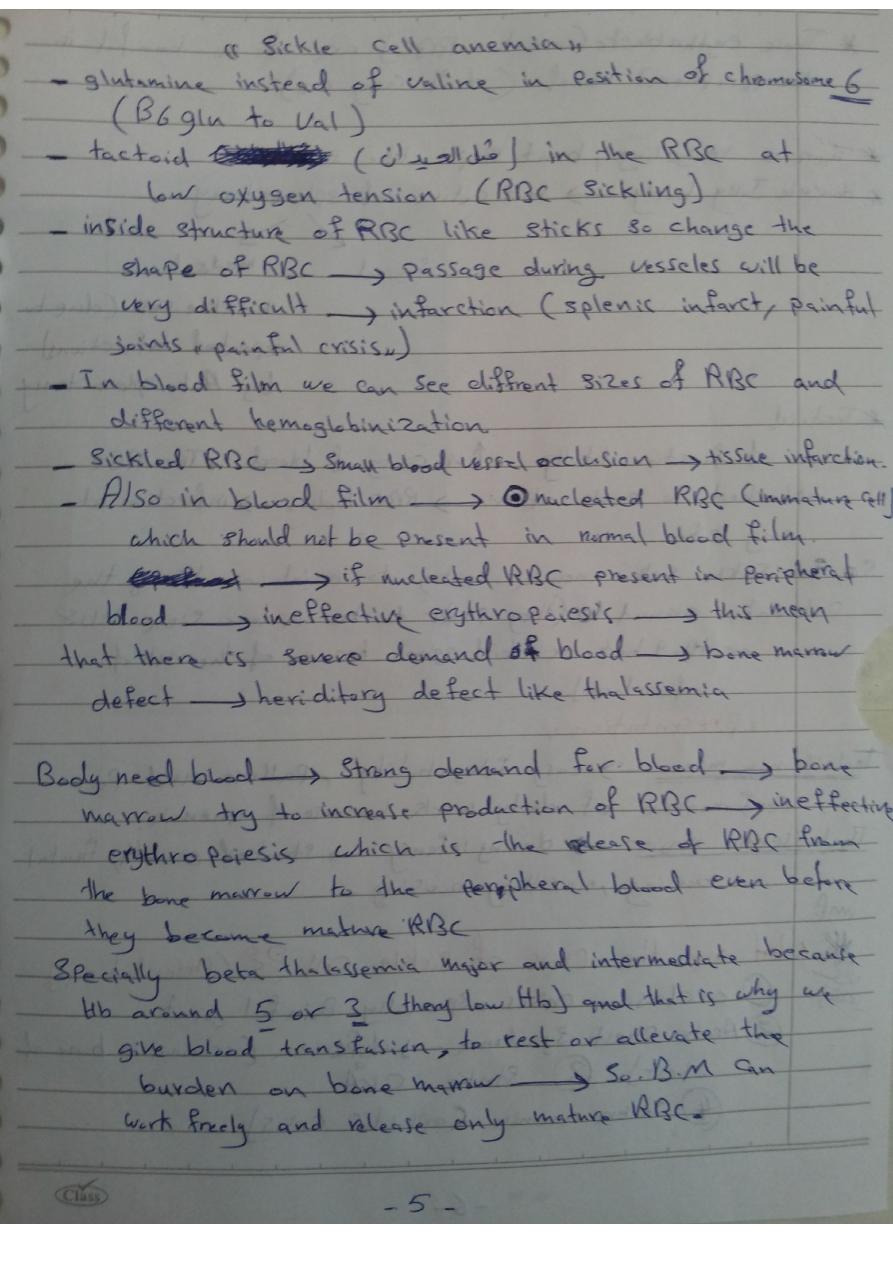 « Sickle cell anemia »
- glutamine instead of valine in position of chromosome 6
(B6 glu to Val)
- tactoid (مثل العيدان) in the RBC at
low oxygen tension (RBC Sickling)
- inside structure of RBC like sticks so change the
shape of RBC → passage during vesseles will be
very difficult → infarction (splenic infarct, painful
joints « painful crisis »)
- In blood film we can see diffrent sizes of RBC and
different hemoglobinization
- Sickled RBC → Small blood vessel occlusion → tissue infarction.
- Also in blood film → nucleated RBC (immature cell)
which should not be present in normal blood film.
→ if nucleated RBC present in Peripheral
blood → ineffective erythropoiesis → this mean
that there is severe demand of blood → bone marrow
defect → heriditary defect like thalassemia
Body need blood → Strong demand for blood → bone
marrow try to increase production of RBC → ineffective
erythropoiesis which is the release of RBC from
the bone marrow to the peripheral blood even before
they become mature RBC
Specially beta thalassemia major and intermediate because
Hb around 5 or 3 (low Hb) and that is why we
give blood transfusion, to rest or allevate the
burden on bone marrow → So. B.M can
work freely and release only mature RBC.
Class
- 5 -